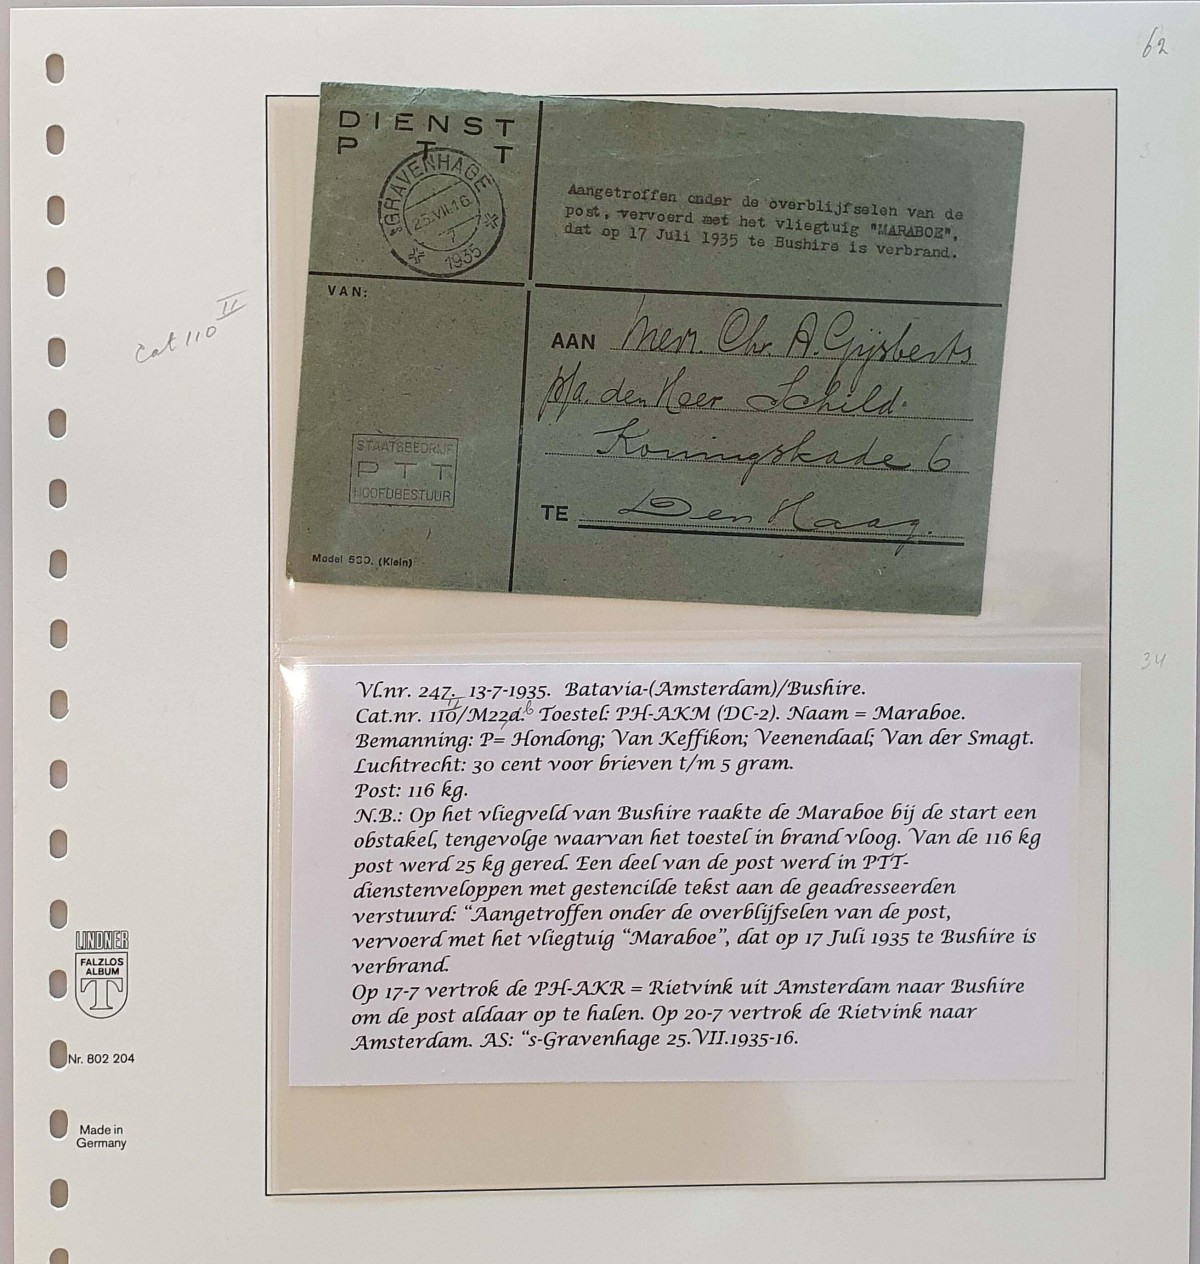 62
DIENST
P T T
'sGRAVENHAGE
25.VII.16
7
1935
Aangetroffen onder de overblijfselen van de
post, vervoerd met het vliegtuig "MARABOE",
dat op 17 Juli 1935 te Bushire is verbrand.
VAN:
Cat 110 II
AAN Mevr. Chr. A. Gijsberts
p/a. den Heer Schild.
Koningskade 6
TE Den Haag.
STAATSBEDRIJF
P T T
HOOFDBESTUUR
Model 530. (Klein)
34
Vl.nr. 247. 13-7-1935. Batavia-(Amsterdam)/Bushire.
Cat.nr. 110/M22d. Toestel: PH-AKM (DC-2). Naam = Maraboe.
II
b
Bemanning: P= Hondong; Van Keffikon; Veenendaal; Van der Smagt.
Luchtrecht: 30 cent voor brieven t/m 5 gram.
Post: 116 kg.
N.B.: Op het vliegveld van Bushire raakte de Maraboe bij de start een
obstakel, tengevolge waarvan het toestel in brand vloog. Van de 116 kg
post werd 25 kg gered. Een deel van de post werd in PTT-
dienstenveloppen met gestencilde tekst aan de geadresseerden
verstuurd: “Aangetroffen onder de overblijfselen van de post,
vervoerd met het vliegtuig “Maraboe”, dat op 17 Juli 1935 te Bushire is
verbrand.
Op 17-7 vertrok de PH-AKR = Rietvink uit Amsterdam naar Bushire
om de post aldaar op te halen. Op 20-7 vertrok de Rietvink naar
Amsterdam. AS: “s-Gravenhage 25.VII.1935-16.
LINDNER
FALZLOS
ALBUM
T
Nr. 802 204
Made in
Germany